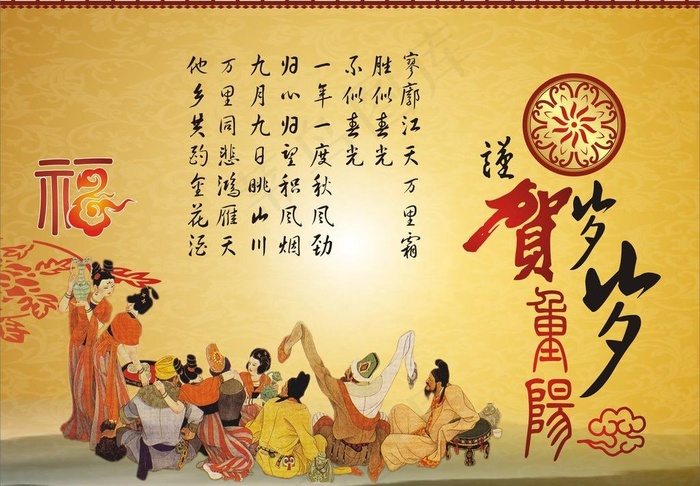 岁岁
謹賀重陽
寥廓江天万里霜
胜似春光
不似春光
一年一度秋风劲
归心归望积风烟
九月九日眺山川
万里同悲鸿雁天
他乡共酌金花酒
福